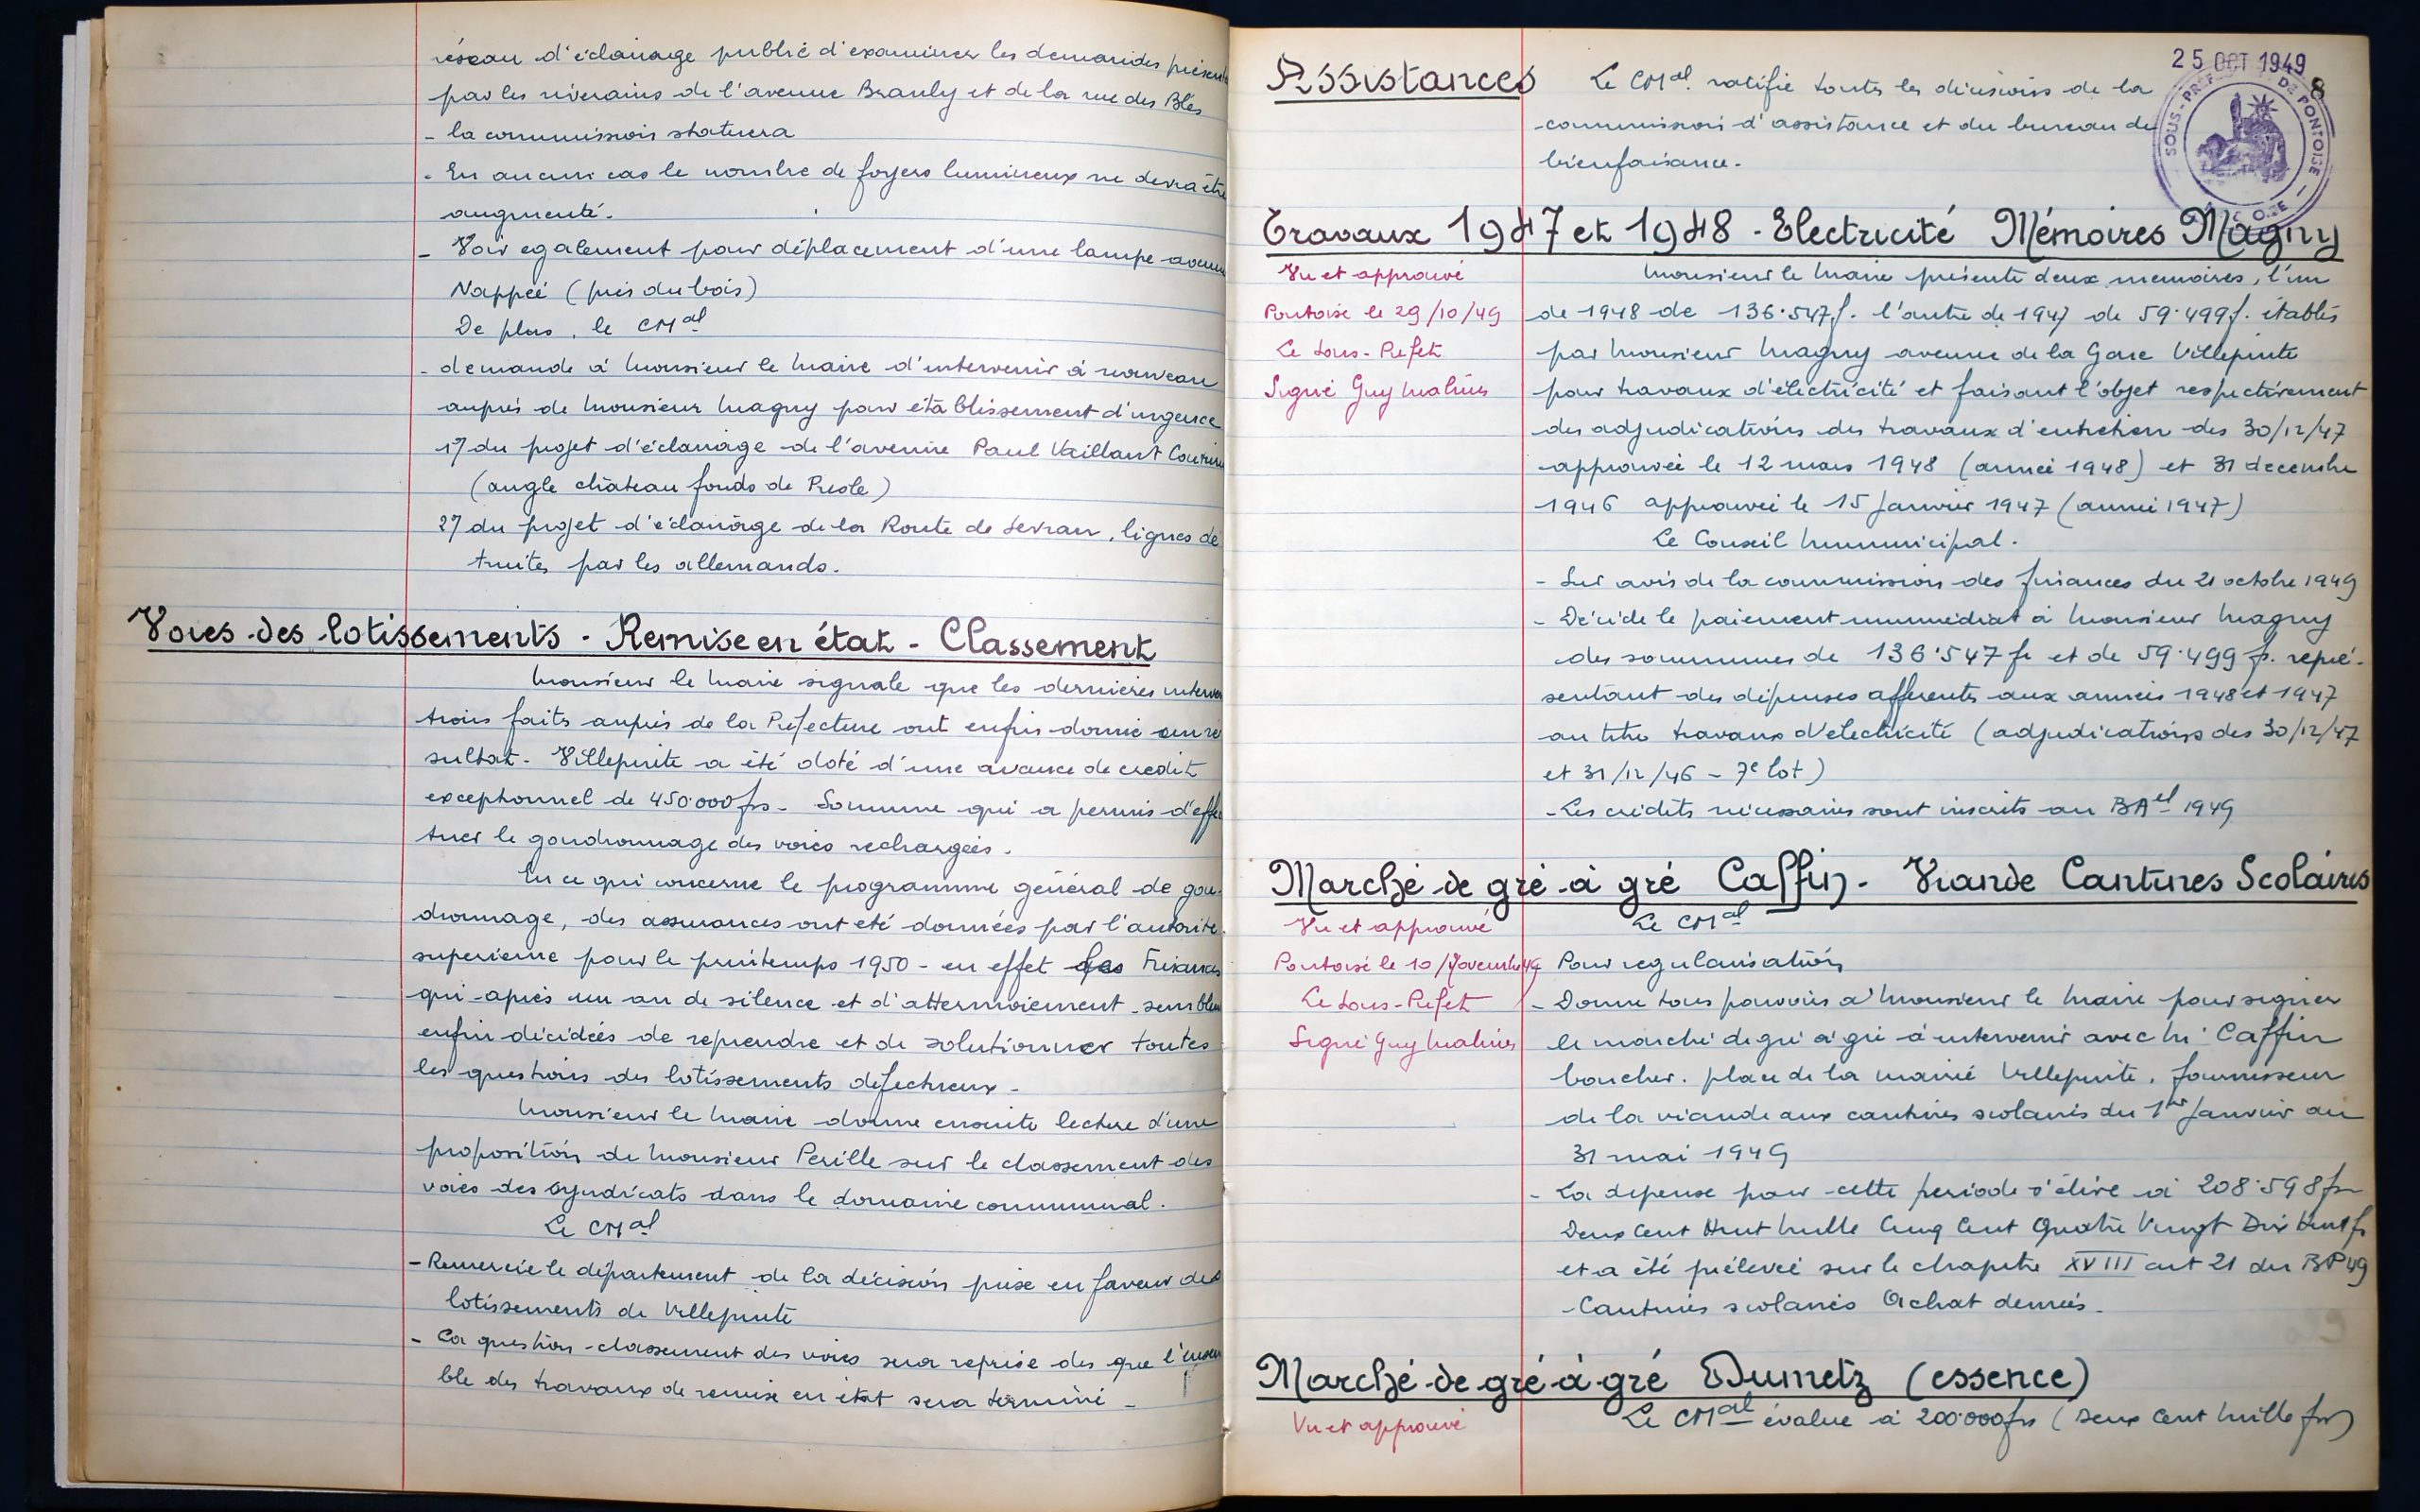 réseau d'éclairage public d'examiner les demandes présent
par les riverains de l'avenue Branly et de la rue des Blés
- la commission statuera
- En aucun cas le nombre de foyers lumineux ne devra être
augmenté.
- Voir egalement pour déplacement d'une lampe avenue
Nappée (près du bois)
De plus, le CMal
- demande à Monsieur le Maire d'intervenir à nouveau
auprès de Monsieur Magny pour établissement d'urgence
1°/ du projet d'éclairage de l'avenue Paul Vaillant Coutur
(angle château fonds de
2°/ du projet d'éclairage de la Route de Sevran, lignes dé
truites par les allemands.
Voies des lotissements - Remise en état - Classement
Monsieur le Maire signale que les dernières interven
tions faits auprès de la Préfecture ont enfin donné un ré
sultat - Villepinte a été doté d'une avance de crédit
exceptionnel de 450.000 frs - Somme qui a permis d'effec
tuer le goudronnage des voies rechargées.
En ce qui concerne le programme général de gou-
dronnage, des assurances ont été données par l'autorité
superieure pour le printemps 1950 - en effet les Finances
qui après un an de silence et d'attermoiement semblen
enfin décidées de reprendre et de solutionner toutes
les questions des lotissements défectueux -
Monsieur le Maire donne ensuite lecture d'une
proposition de Monsieur Perille sur le classement des
voies des syndicats dans le domaine communal.
Le CMal
- Remercie le département de la décision prise en faveur des
lotissements de Villepinte
- La question classement des voies sera reprise des que l'ensem
ble des travaux de remise en état sera terminé -
25 OCT 1949
8
SOUS-PREFECTURE DE PONTOISE
S.-&-OISE
Assistances
Le CMal ratifie toutes les décisions de la
commission d'assistance et du bureau de
bienfaisance.
Travaux 1947 et 1948 - Electricité Mémoires Magny
Vu et approuvé
Pontoise le 29/10/49
Le Sous-Préfet
Signé Guy Malines
Monsieur le Maire présente deux memoires, l'un
de 1948 de 136.547 f. l'autre de 1947 de 59.499 f. établis
par Monsieur Magny avenue de la Gare Villepinte
pour travaux d'électricité et faisant l'objet respectivement
des adjudications des travaux d'entretien des 30/12/47
approuvée le 12 mars 1948 (année 1948) et 31 decembre
1946 approuvée le 15 Janvier 1947 (année 1947)
Le Conseil Mumunicipal.
- Sur avis de la commission des finances du 21 octobre 1949
- Décide le paiement immédiat à Monsieur Magny
des sommes de 136.547 fr et de 59.499 fr. repré-
sentant des dépenses afferents aux années 1948 et 1947
au titre travaux d'electricité (adjudications des 30/12/47
et 31/12/46 - 7e lot)
- Les crédits nécessaires sont inscrits au BAel 1949
Marché de gré à gré Caffin - Viande Cantines Scolaires
Vu et approuvé
Pontoise le 10 Novembre 49
Le Sous-Préfet
Signé Guy Malines
Le CMal
Pour regularisation
- Donne tous pouvoirs à Monsieur le Maire pour signer
le marché de gré à gré à intervenir avec Mr Caffin
boucher. place de la mairie Villepinte. fournisseur
de la viande aux cantines scolaires du 1er Janvier au
31 mai 1949
- La dépense pour cette periode s'élève à 208.598 frs
Deux Cent Huit Mille Cinq Cent Quatre Vingt Dix Huit fr
et a été prélevée sur le chapitre XVIII art 21 du BP 49
- Cantines scolaires Achat denrées -
Marché de gré à gré Dumetz (essence)
Vu et approuvé
Le CMal évalue à 200.000 frs (Deux Cent Mille frs)